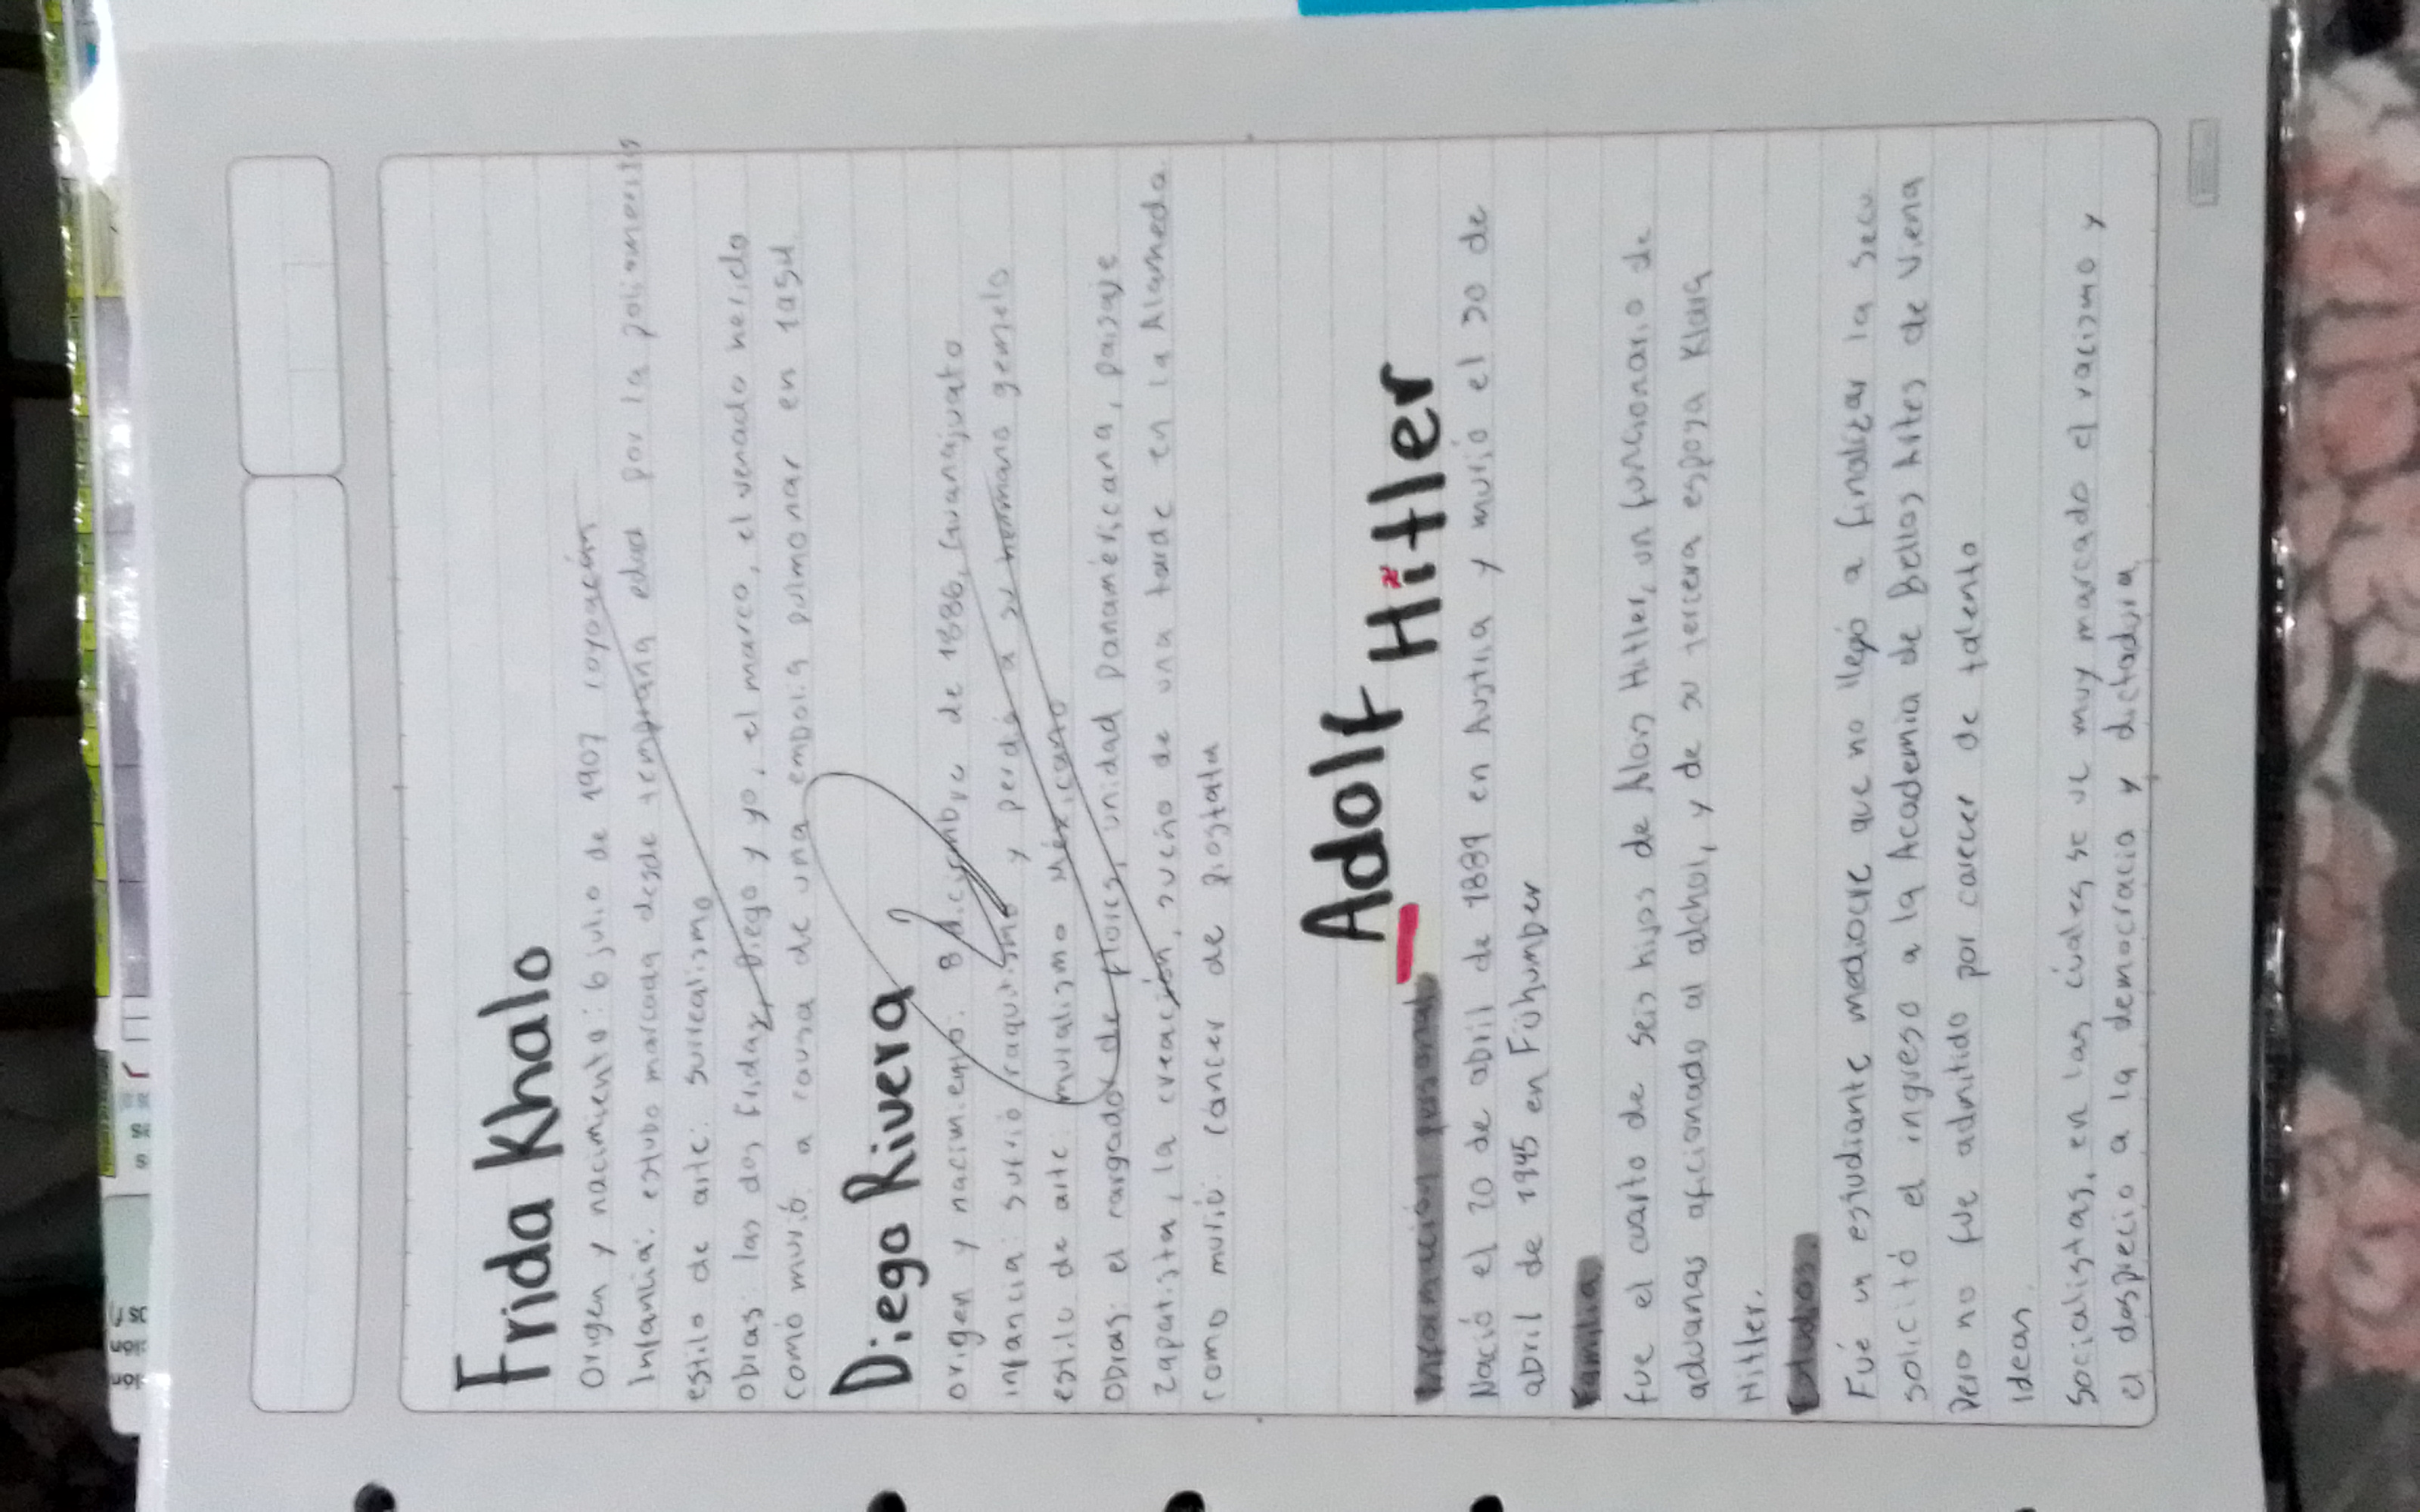 Frida Khalo
Origen y nacimiento: 6 julio de 1907 coyoacán
Infancia: estubo marcada desde temprana edad por la poliomelitis
estilo de arte: surrealismo
obras: las dos fridas, Diego y yo, el marco, el venado herido
como murió a causa de una embolia pulmonar en 1954
Diego Rivera
origen y nacimiento: 8 diciembre de 1886, Guanajuato
infancia: sufrió raquitismo y perdió a su hermano gemelo
estilo de arte: muralismo Méxicano
Obras: el cargador de flores, unidad panaméricana, paisaje
zapatista, la creación, sueño de una tarde en la Alameda
como murió: cáncer de prostata
Adolf Hitler
Información personal
Nació el 20 de abril de 1889 en Austria y murió el 30 de
abril de 1945 en Führumber
Familia
fue el cuarto de seis hijos de Alois Hitler, un funcionario de
aduanas aficionado al alchol, y de su tercera esposa Klara
Hitler.
Estudios.
Fué un estudiante mediocre que no llegó a finalizar la secu
solicitó el ingreso a la Academia de Bellas Artes de Viena
pero no fue admitido por carecer de talento
Ideas.
Socialistas, en las cuales se ve muy marcado el racismo y
el desprecio a la democracia y dictaduria